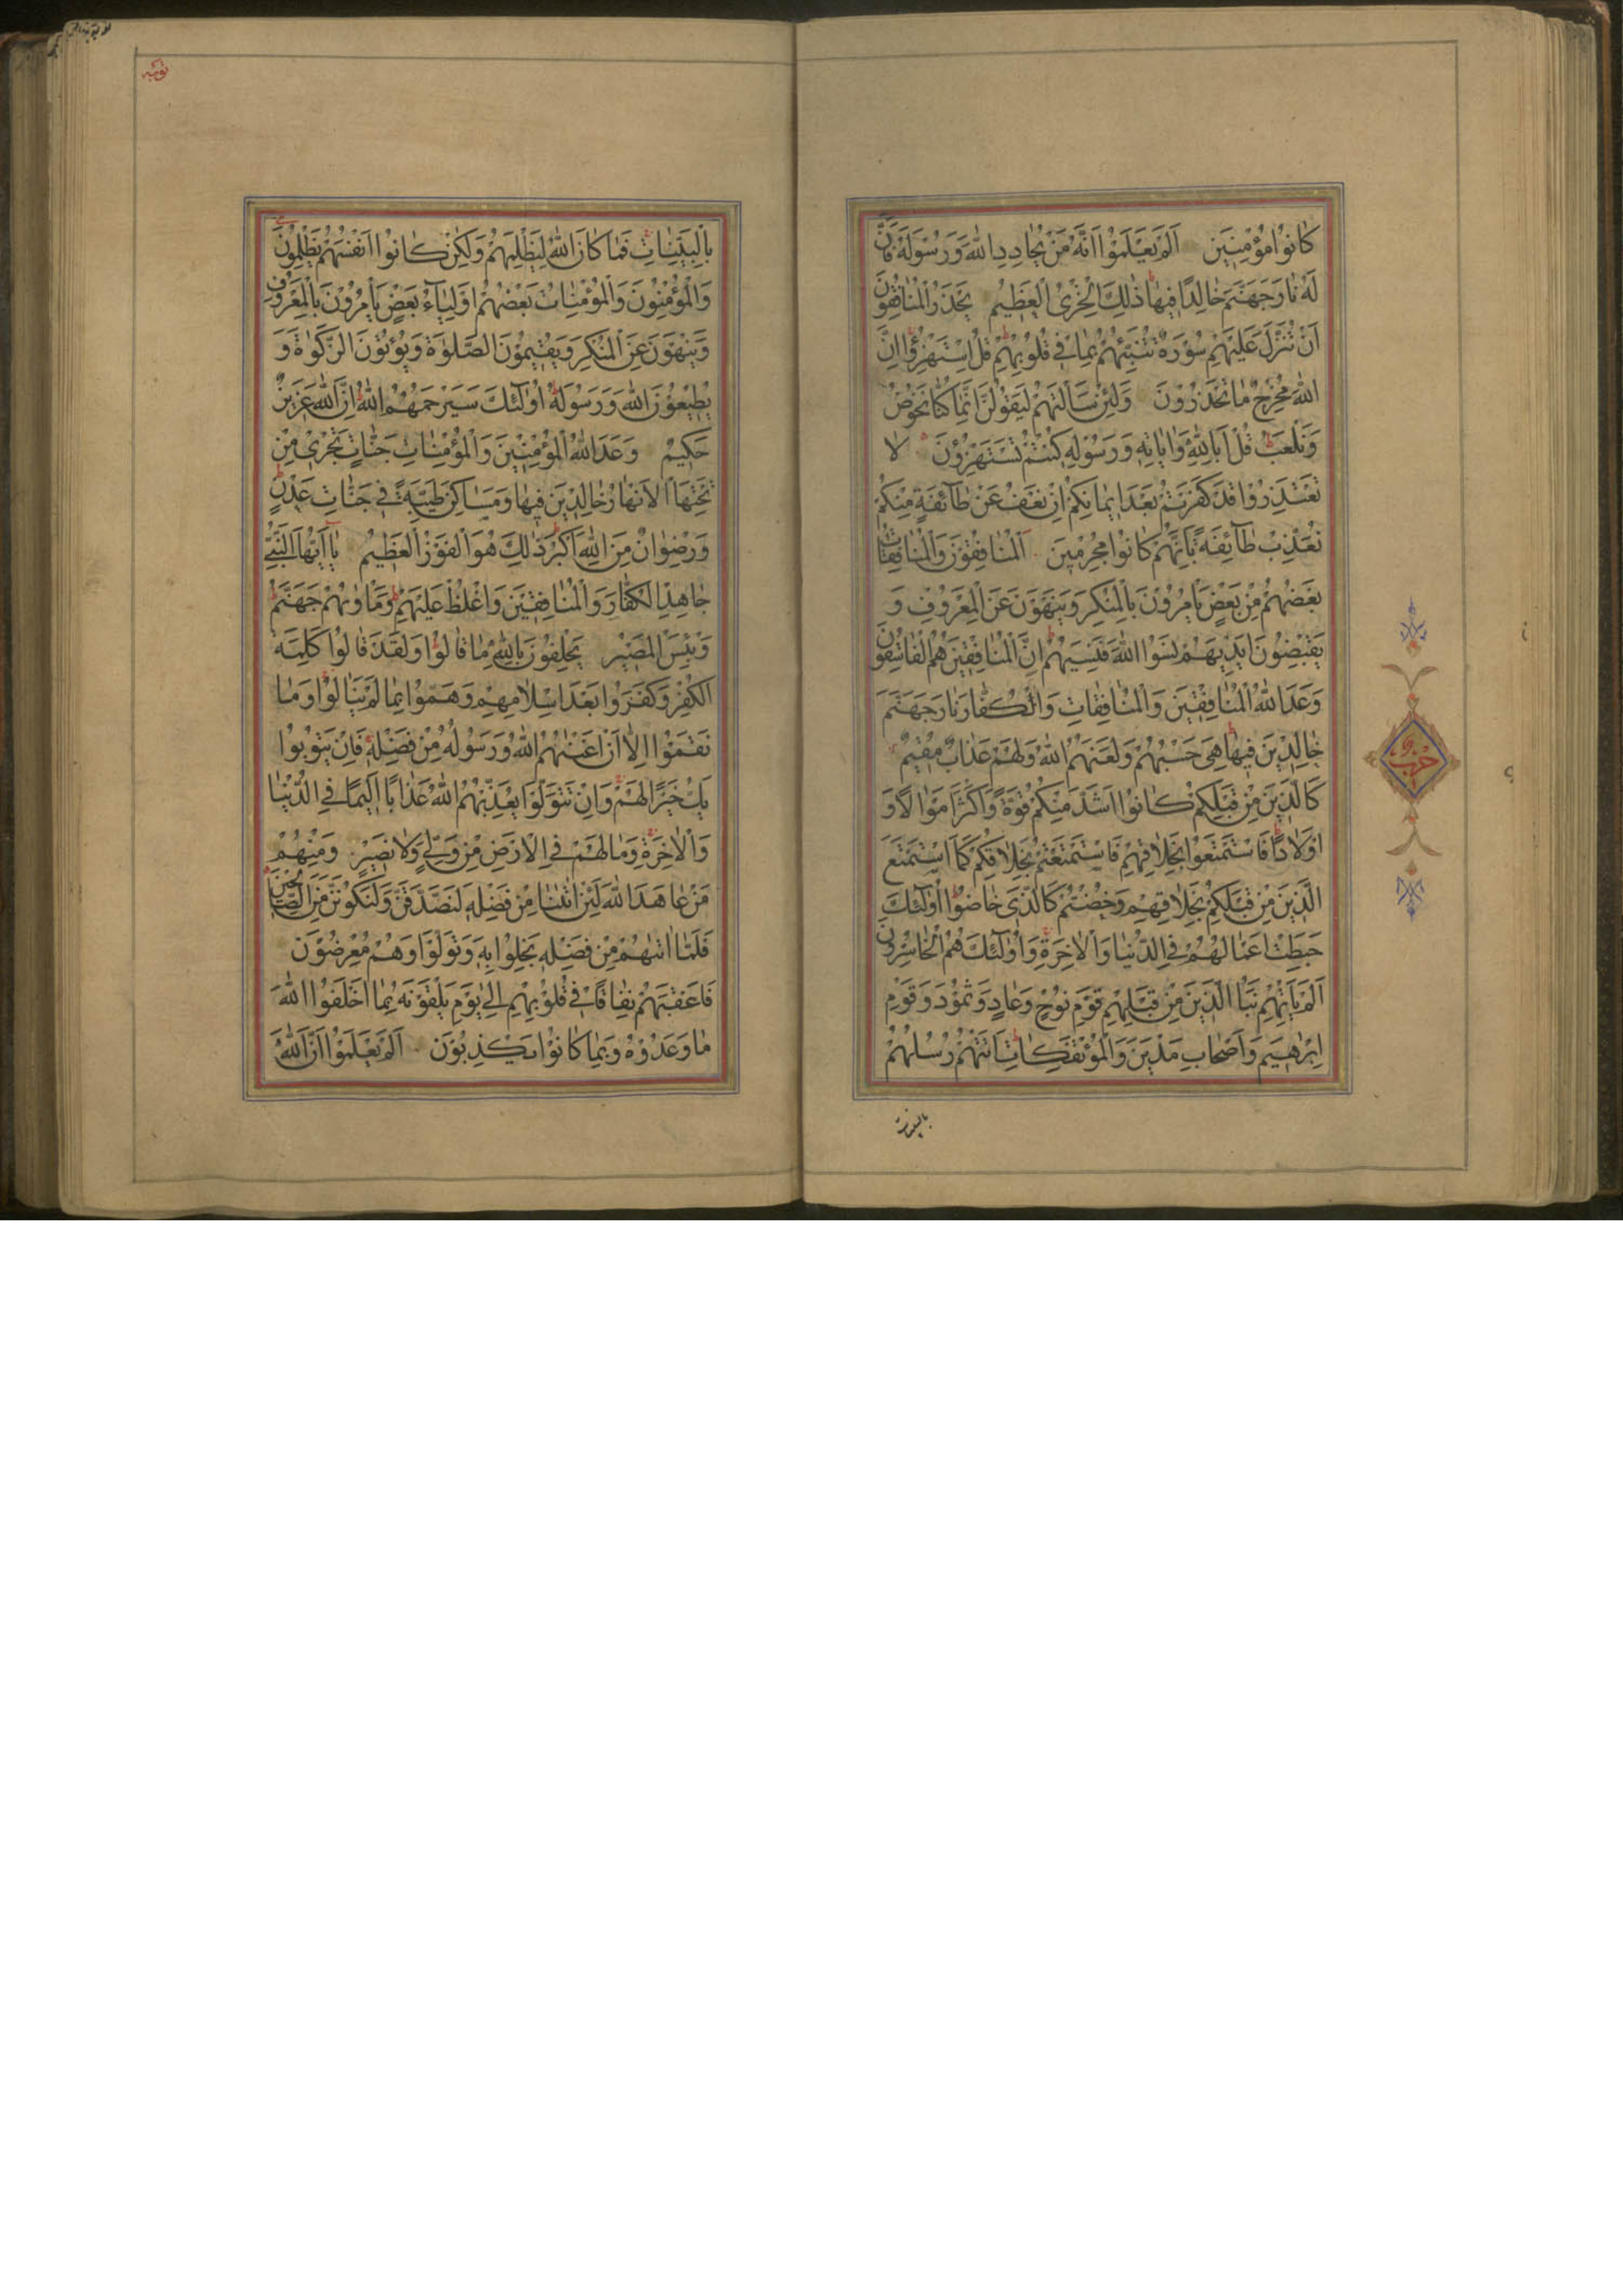 كَانُوا مُؤْمِنِينَ اَلَمْ يَعْلَمُوا اَنَّهُ مَنْ يُحَادِدِ اللهَ وَرَسُولَهُ فَاَنَّ
لَهُ نَارَ جَهَنَّمَ خَالِدًا فِيهَا ذٰلِكَ الْخِزْيُ الْعَظِيمُ يَحْذَرُ الْمُنَافِقُونَ
اَنْ تُنَزَّلَ عَلَيْهِمْ سُورَةٌ تُنَبِّئُهُمْ بِمَا فِي قُلُوبِهِمْ قُلِ اسْتَهْزِؤُا اِنَّ
اللهَ مُخْرِجٌ مَا تَحْذَرُونَ وَلَئِنْ سَاَلْتَهُمْ لَيَقُولُنَّ اِنَّمَا كُنَّا نَخُوضُ
وَنَلْعَبُ قُلْ اَبِاللهِ وَاٰيَاتِهِ وَرَسُولِهِ كُنْتُمْ تَسْتَهْزِؤُنَ لَا
تَعْتَذِرُوا قَدْ كَفَرْتُمْ بَعْدَ اِيمَانِكُمْ اِنْ نَعْفُ عَنْ طَآئِفَةٍ مِنْكُمْ
نُعَذِّبْ طَآئِفَةً بِاَنَّهُمْ كَانُوا مُجْرِمِينَ اَلْمُنَافِقُونَ وَالْمُنَافِقَاتُ
بَعْضُهُمْ مِنْ بَعْضٍ يَاْمُرُونَ بِالْمُنْكَرِ وَيَنْهَوْنَ عَنِ الْمَعْرُوفِ وَ
يَقْبِضُونَ اَيْدِيَهُمْ نَسُوا اللهَ فَنَسِيَهُمْ اِنَّ الْمُنَافِقِينَ هُمُ الْفَاسِقُونَ
وَعَدَ اللهُ الْمُنَافِقِينَ وَالْمُنَافِقَاتِ وَالْكُفَّارَ نَارَ جَهَنَّمَ
خَالِدِينَ فِيهَا هِيَ حَسْبُهُمْ وَلَعَنَهُمُ اللهُ وَلَهُمْ عَذَابٌ مُقِيمٌ
كَالَّذِينَ مِنْ قَبْلِكُمْ كَانُوا اَشَدَّ مِنْكُمْ قُوَّةً وَاَكْثَرَ اَمْوَالًا وَ
اَوْلَادًا فَاسْتَمْتَعُوا بِخَلَاقِهِمْ فَاسْتَمْتَعْتُمْ بِخَلَاقِكُمْ كَمَا اسْتَمْتَعَ
الَّذِينَ مِنْ قَبْلِكُمْ بِخَلَاقِهِمْ وَخُضْتُمْ كَالَّذِي خَاضُوا اُولٰٓئِكَ
حَبِطَتْ اَعْمَالُهُمْ فِي الدُّنْيَا وَالْاٰخِرَةِ وَاُولٰٓئِكَ هُمُ الْخَاسِرُونَ
اَلَمْ يَاْتِهِمْ نَبَاُ الَّذِينَ مِنْ قَبْلِهِمْ قَوْمِ نُوحٍ وَعَادٍ وَثَمُودَ وَقَوْمِ
اِبْرٰهِيمَ وَاَصْحَابِ مَدْيَنَ وَالْمُؤْتَفِكَاتِ اَتَتْهُمْ رُسُلُهُمْ
بالبينات
حزب
بِالْبَيِّنَاتِ فَمَا كَانَ اللهُ لِيَظْلِمَهُمْ وَلٰكِنْ كَانُوا اَنْفُسَهُمْ يَظْلِمُونَ
وَالْمُؤْمِنُونَ وَالْمُؤْمِنَاتُ بَعْضُهُمْ اَوْلِيَآءُ بَعْضٍ يَاْمُرُونَ بِالْمَعْرُوفِ
وَيَنْهَوْنَ عَنِ الْمُنْكَرِ وَيُقِيمُونَ الصَّلٰوةَ وَيُؤْتُونَ الزَّكٰوةَ وَ
يُطِيعُونَ اللهَ وَرَسُولَهُ اُولٰٓئِكَ سَيَرْحَمُهُمُ اللهُ اِنَّ اللهَ عَزِيزٌ
حَكِيمٌ وَعَدَ اللهُ الْمُؤْمِنِينَ وَالْمُؤْمِنَاتِ جَنَّاتٍ تَجْرِي مِنْ
تَحْتِهَا الْاَنْهَارُ خَالِدِينَ فِيهَا وَمَسَاكِنَ طَيِّبَةً فِي جَنَّاتِ عَدْنٍ
وَرِضْوَانٌ مِنَ اللهِ اَكْبَرُ ذٰلِكَ هُوَ الْفَوْزُ الْعَظِيمُ يَا اَيُّهَا النَّبِيُّ
جَاهِدِ الْكُفَّارَ وَالْمُنَافِقِينَ وَاغْلُظْ عَلَيْهِمْ وَمَاْوٰيهُمْ جَهَنَّمُ
وَبِئْسَ الْمَصِيرُ يَحْلِفُونَ بِاللهِ مَا قَالُوا وَلَقَدْ قَالُوا كَلِمَةَ
الْكُفْرِ وَكَفَرُوا بَعْدَ اِسْلَامِهِمْ وَهَمُّوا بِمَا لَمْ يَنَالُوا وَمَا
نَقَمُوا اِلَّا اَنْ اَغْنٰيهُمُ اللهُ وَرَسُولُهُ مِنْ فَضْلِهِ فَاِنْ يَتُوبُوا
يَكُ خَيْرًا لَهُمْ وَاِنْ يَتَوَلَّوْا يُعَذِّبْهُمُ اللهُ عَذَابًا اَلِيمًا فِي الدُّنْيَا
وَالْاٰخِرَةِ وَمَا لَهُمْ فِي الْاَرْضِ مِنْ وَلِيٍّ وَلَا نَصِيرٍ وَمِنْهُمْ
مَنْ عَاهَدَ اللهَ لَئِنْ اٰتٰينَا مِنْ فَضْلِهِ لَنَصَّدَّقَنَّ وَلَنَكُونَنَّ مِنَ الصَّالِحِينَ
فَلَمَّا اٰتٰيهُمْ مِنْ فَضْلِهِ بَخِلُوا بِهِ وَتَوَلَّوْا وَهُمْ مُعْرِضُونَ
فَاَعْقَبَهُمْ نِفَاقًا فِي قُلُوبِهِمْ اِلٰى يَوْمِ يَلْقَوْنَهُ بِمَا اَخْلَفُوا اللهَ
مَا وَعَدُوهُ وَبِمَا كَانُوا يَكْذِبُونَ اَلَمْ يَعْلَمُوا اَنَّ اللهَ